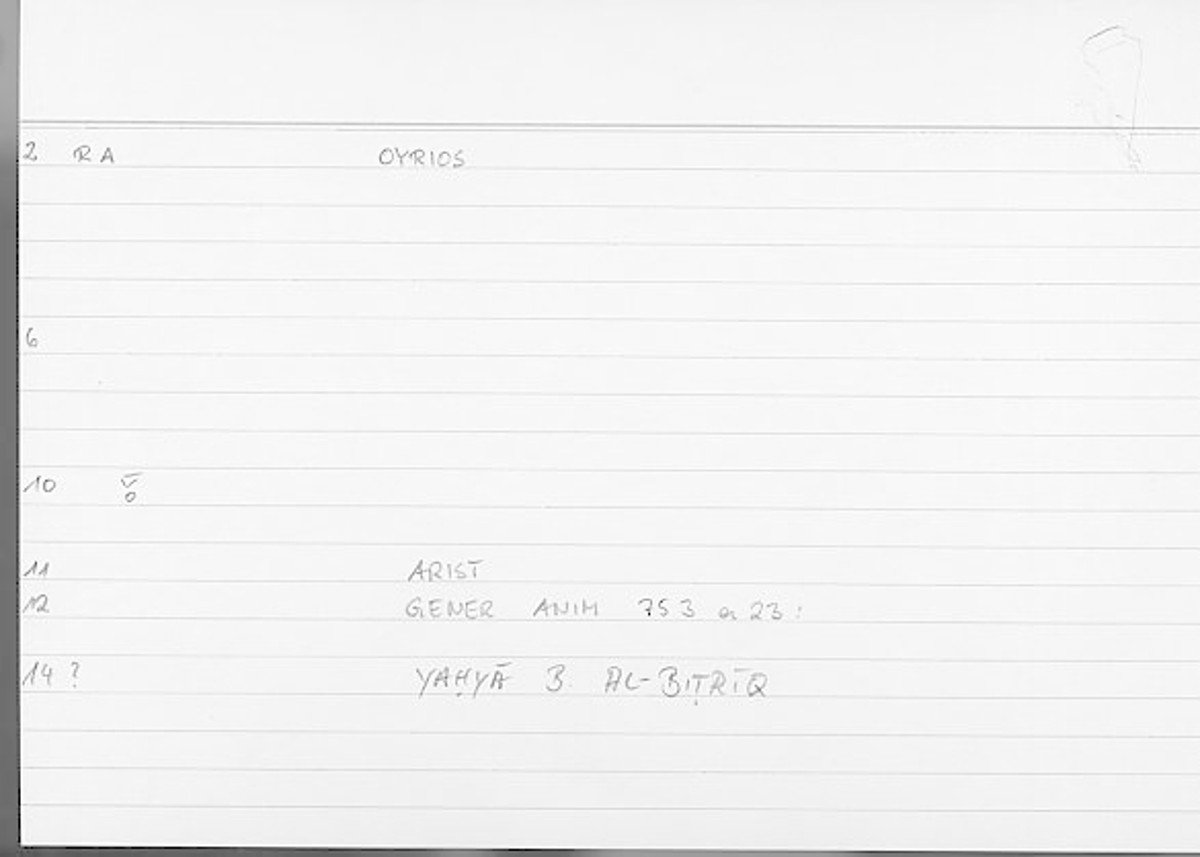 2 RA OYRIOS
6
10
11 ARIST
12 GENER ANIM 753 a 23:
14 ? YAḤYĀ B. AL-BIṬRĪQ